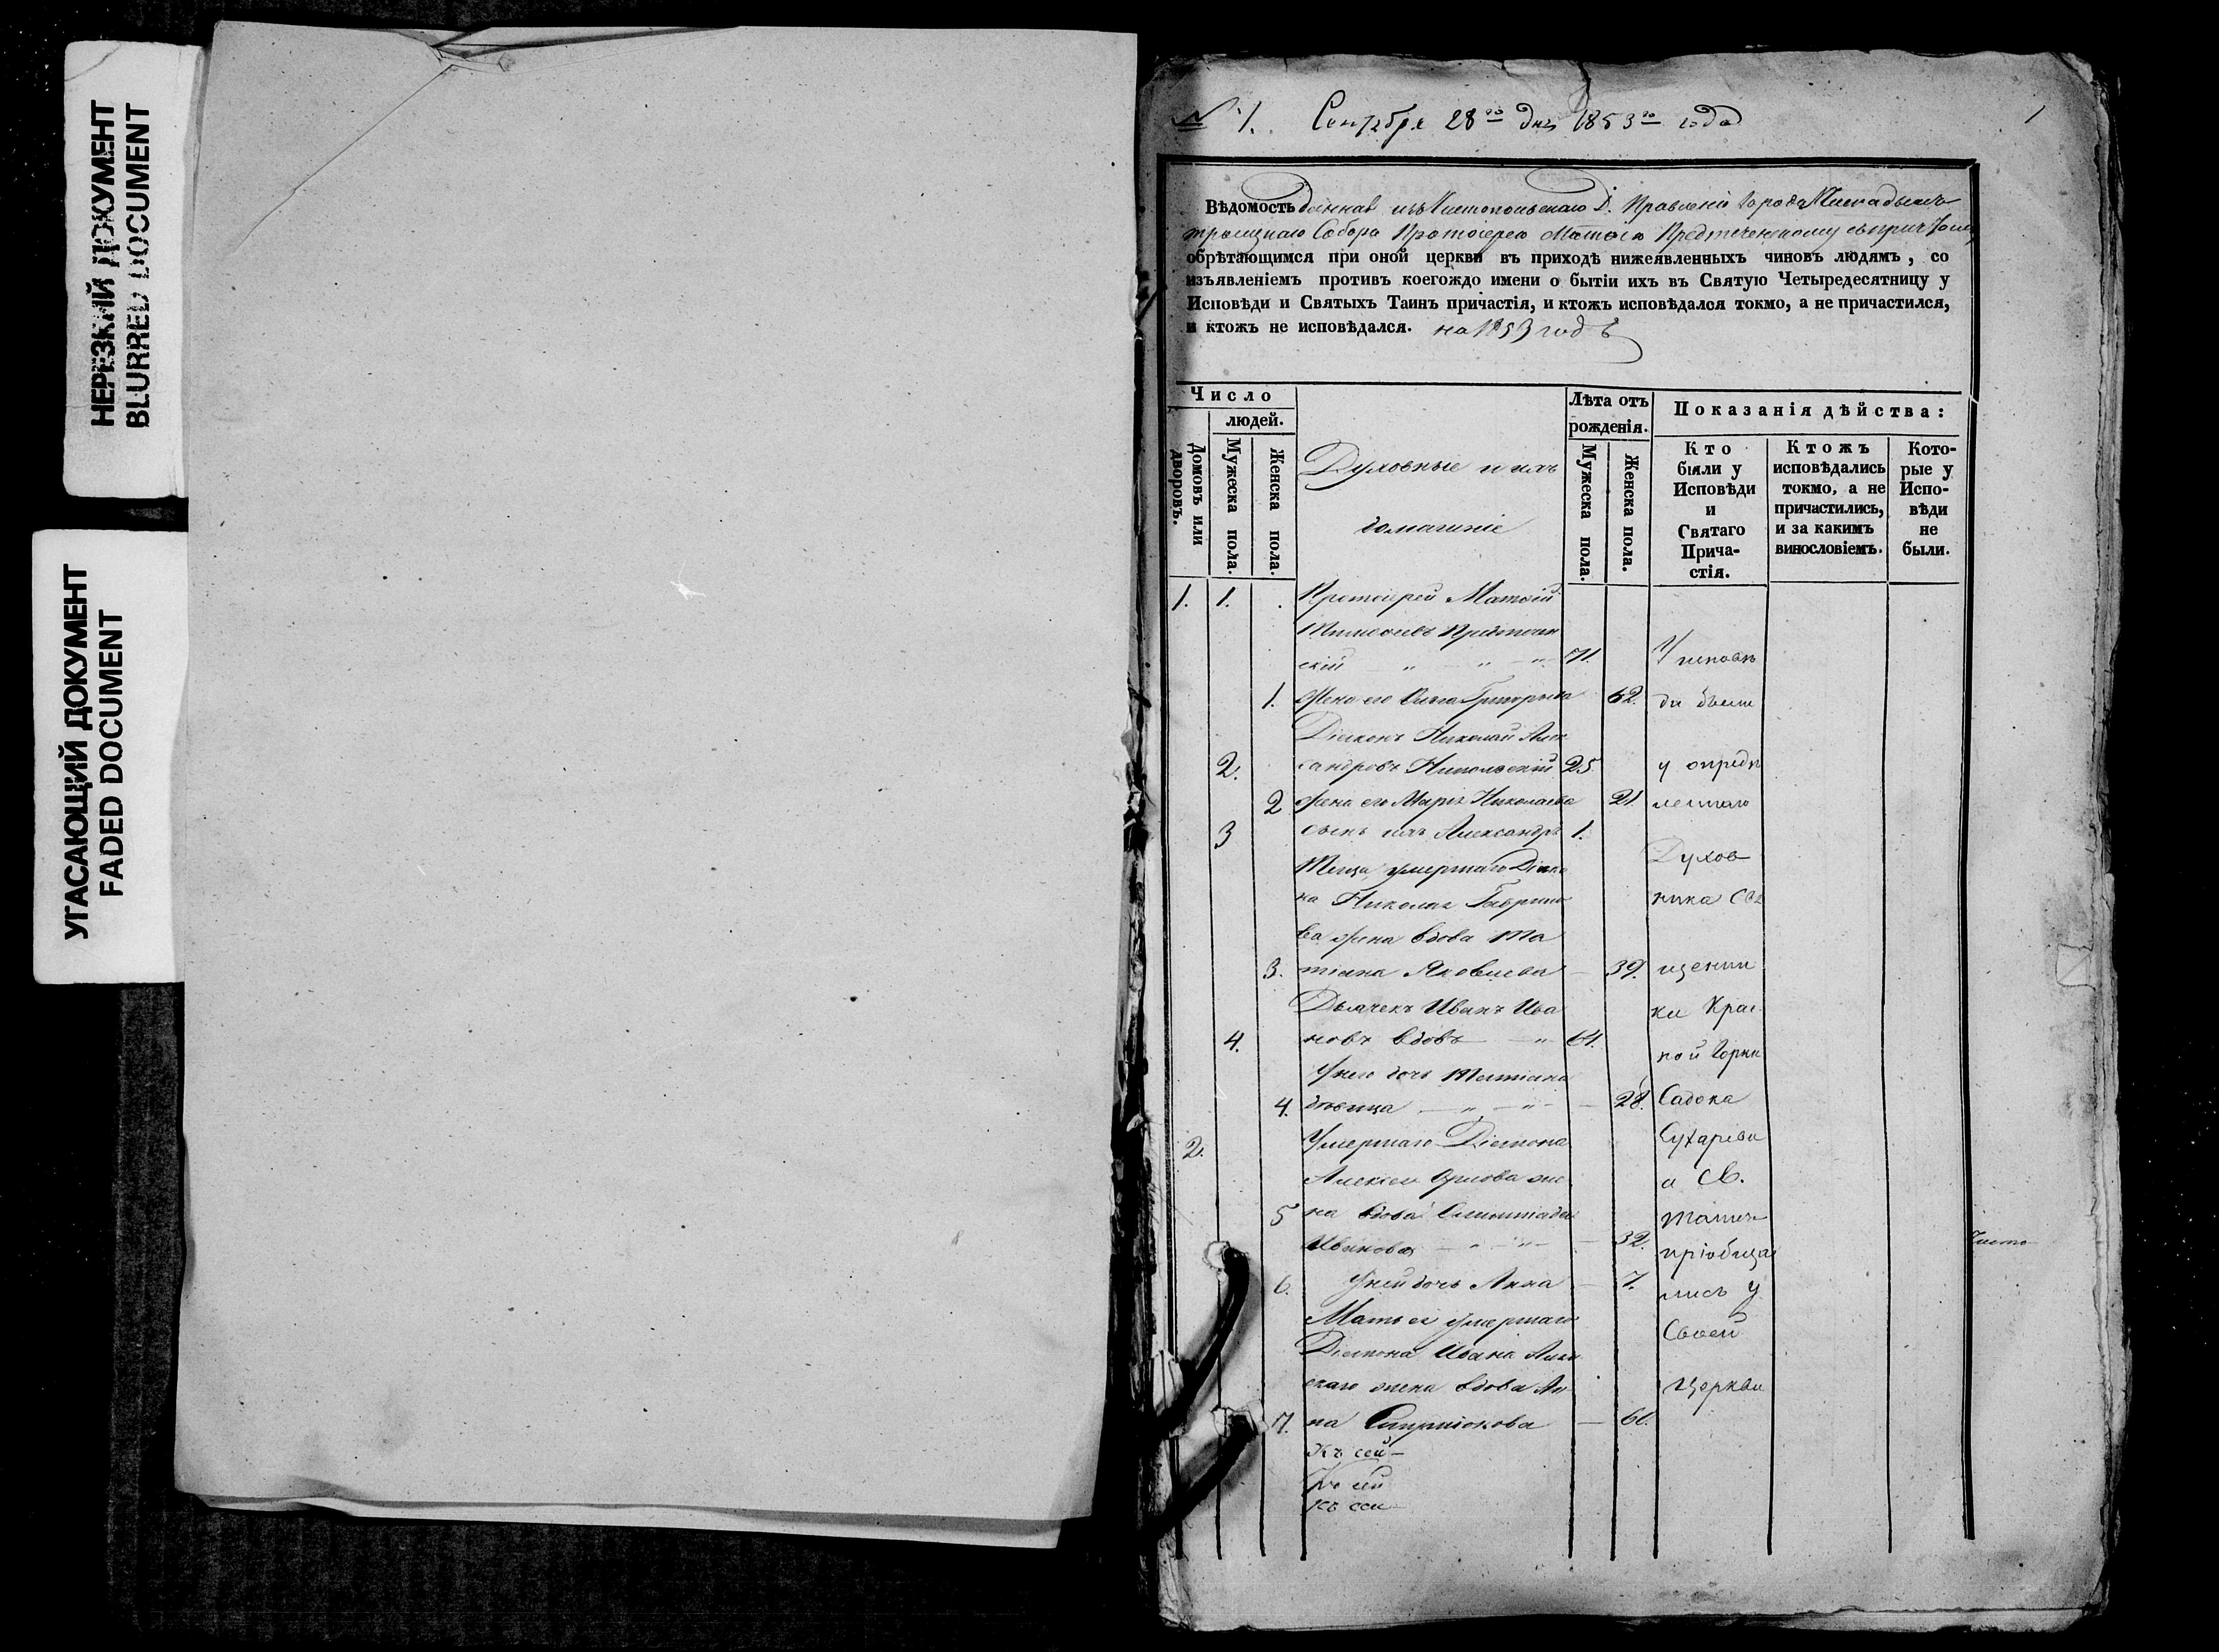 НЕРЕЗКИЙ ДОКУМЕНТ
BLURRED DOCUMENT
УГАСАЮЩИЙ ДОКУМЕНТ
FADED DOCUMENT
№ 1. Сентября 28го дня 1853го года
1
Вѣдомость данная изъ Чистопольскаго Д. Правленія города
троицкаго Собора Протоіерею Матѳею Предтеченскому
обрѣтающимся при оной церкви въ приходѣ нижеявленныхъ чиновъ людямъ, со
изъявленіемъ противъ коегождо имени о бытіи ихъ въ Святую Четыредесятницу у
Исповѣди и Святыхъ Таинъ причастія, и ктожъ исповѣдался токмо, а не причастился,
и ктожъ не исповѣдался. на 1853 годъ
Число
людей.
Домовъ или дворовъ.
Мужеска пола.
Женска пола.
Духовные и ихъ
домашніе
Лѣта отъ рожденія.
Мужеска пола.
Женска пола.
Показанія дѣйства:
Кто были у Исповѣди и Святаго Прича- стія.
Ктожъ исповѣдались токмо, а не причастились, и за какимъ винословіемъ.
Кото- рые у Испо- вѣди не были.
1. 1. Протоіерей Матѳій
Предтечен
скій 71. У исповѣ
1. Жена его Григорьева 62. ди были
Діаконъ Николай Алек
2. сандровъ Никольскій 25 у опредѣ
2 жена его Марія Николаева 21 леннаго
3 сынъ ихъ Александръ 1.
Теща умершаго Діако Духов
на Николая Гаврило ника Свя
ва жена вдова Та
3. тіана Яковлева 39. щенни
Дьячекъ Иванъ Ива ка Крас
4. новъ вдовъ 64. ной Горки
У него дочь Татіана
4. дѣвица 28. Садока
2. Умершаго Діакона Сухарева
Алексія Орлова же а Св.
5 на вдова Олимпіада Таинъ
Иванова 32. пріобща
6. У ней дочь Анна 7. лись у
Мать ея умершаго Своей
Діакона Ивана
скаго жена вдова Ан Церкви
7. на Спиридонова
Къ сей
Къ сей
Къ сей